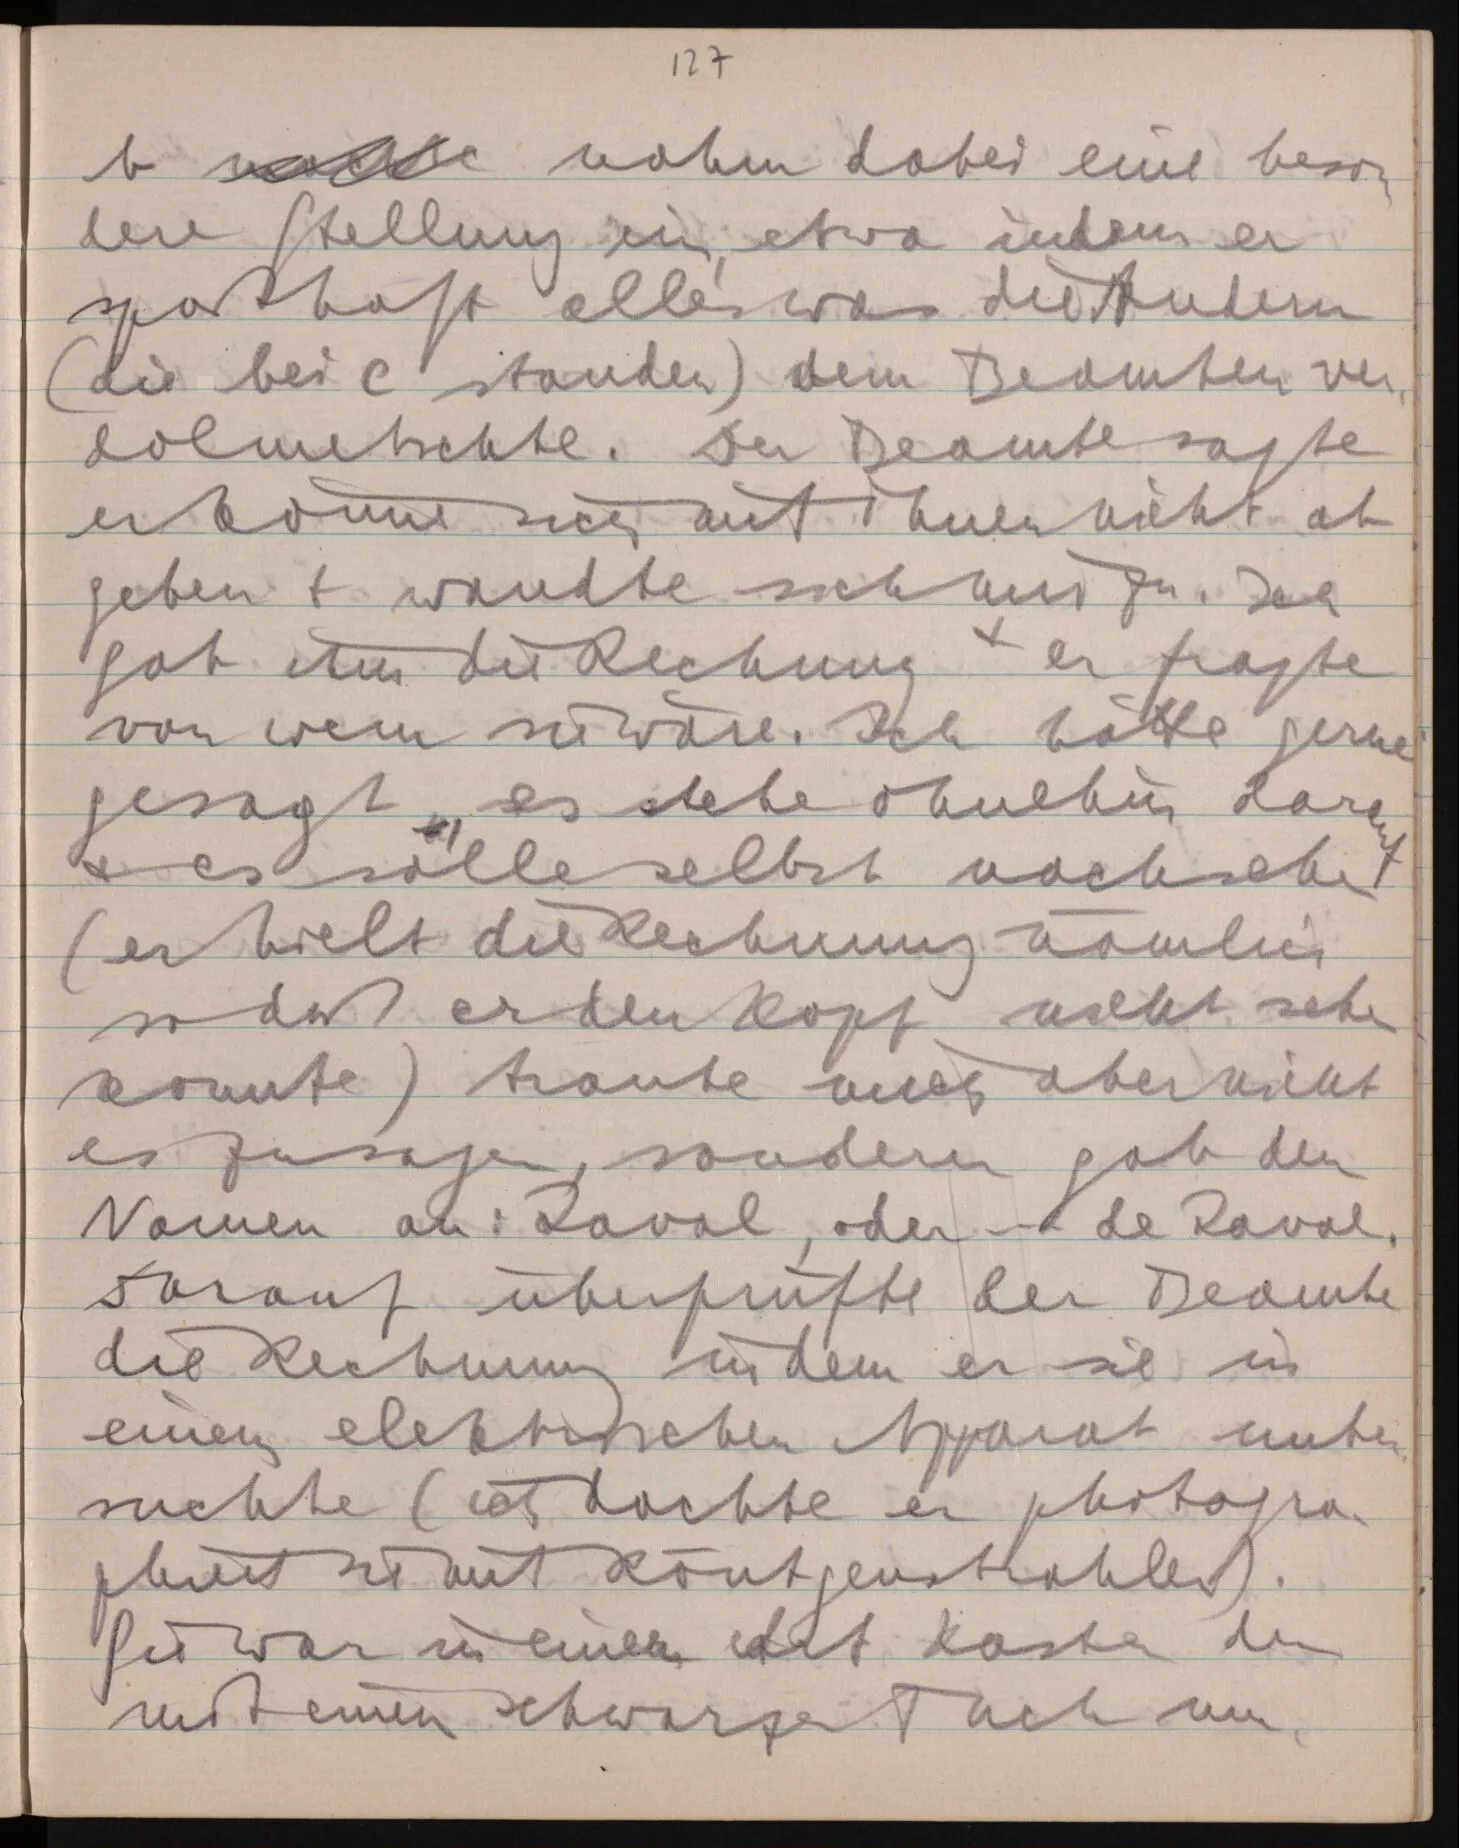 127
b nahm dabei eine beson
dere Stellung ein, etwa indem er
spaßhaft alles was die Andern
(die bei c standen) dem Beamten ver-
dolmetschte. Der Beamte sagte
er könne sich mit ihnen nicht ab
geben + wandte sich uns zu. Ich
gab ihm die Rechnung + er fragte
von wem sie wäre. Ich hätte gerne
gesagt, es stehe ohnehin darauf
+ er solle selbst nachsehen
(er hielt die Rechnung nämlich
so daß er den Kopf nicht sehen
konnte) traute mich aber nicht
es zu sagen, sondern gab den
Namen an: Laval, oder – de Laval.
Darauf überprüfte der Beamte
die Rechnung indem er sie in
einem elektrischen Apparat unter-
suchte (ich dachte er photogra-
phiert sie mit Röntgenstrahlen).
Sie war in einer Art Kasten der
mit einem schwarzen Tuch um-